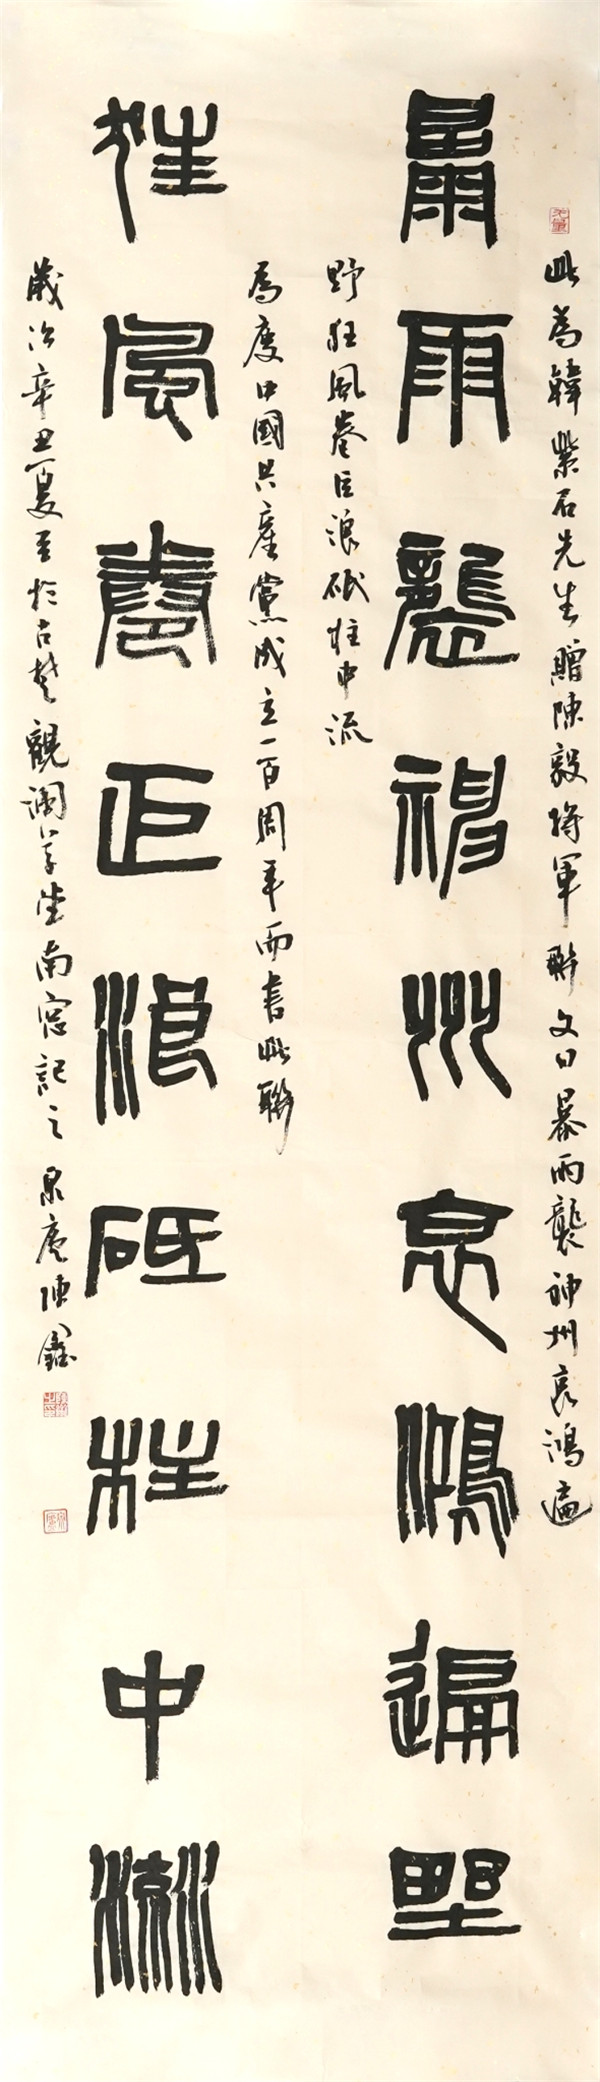 此為韓紫石先生贈陳毅將軍聯文曰暴雨襲神州哀鴻遍
暴雨襲神州哀鴻遍野
野狂風卷巨浪砥柱中流
為慶中國共產黨成立一百周年而書此聯
狂風卷巨浪砥柱中流
歲次辛丑夏至於古楚觀瀾草堂南窗記之泉庵陳鑫